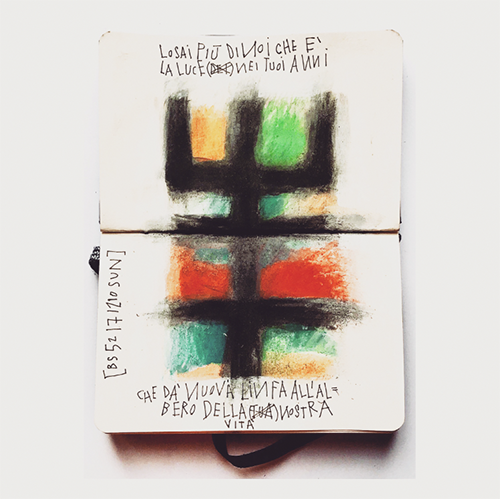 LO SAI PIÙ DI NOI CHE E'
LA LUCE (DEI) NEI TUOI ANNI
[BS52171210SUN]
CHE DA' NUOVA LINFA ALL'AL=
BERO DELLA (TUA) NOSTRA
VITA